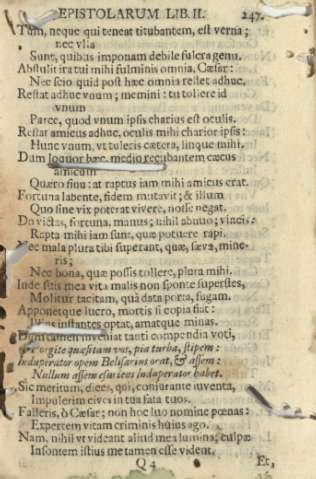 EPISTOLARUM LIB. II. 247.
Tum, neque qui teneat titubantem, est verna;
nec vlla
Sunt, quibus imponam debile fulcra genu.
Abstulit ira tui mihi fulminis omnia, Cæsar:
Nec scio quid post hæc omnia restet adhuc.
Restat adhuc vnum; memini: tu tollere id
vnum
Parce, quod vnum ipsis charius est oculis.
Restat amicus adhuc, oculis mihi charior ipsis:
Hunc vnum, vt tuleris cætera, linque mihi.
Dum loquor hæc, medio recubantem cæcus
amicum
Quæro sinu: at raptus iam mihi amicus erat.
Fortuna labente, fidem mutavit; & illum
Quo sine vix poterat vivere, nosse negat.
Do victas, fortuna, manus; nihil abnuo; vincis:
Rapta mihi iam sunt, quæ potuere rapi.
Nec mala plura tibi superant, quæ, sæva, mine-
ris;
Nec bona, quæ possis tollere, plura mihi.
Inde suis mea vita malis non sponte superstes,
Molitur tacitam, quâ data porta, fugam.
Apponetque lucro, mortis si copia fiat:
instantes optat, amatque minas.
tamen inveniat tanti compendia voti,
Porgite quæsitam vos, pia turba, stipem:
Induperator opem Belisarius orat, & assem:
Nullum assem
Sic meritum, dices, qui, coniurante iuventa,
Impulerim cives in tua fata tuos.
Falleris, ô Cæsar; non hoc luo nomine pœnas:
Expertem vitam criminis huius ago.
Nam, nihil vt videant aliud mea lumina; culpæ
Insontem istius me tamen esse vident.
Q 4 Et,